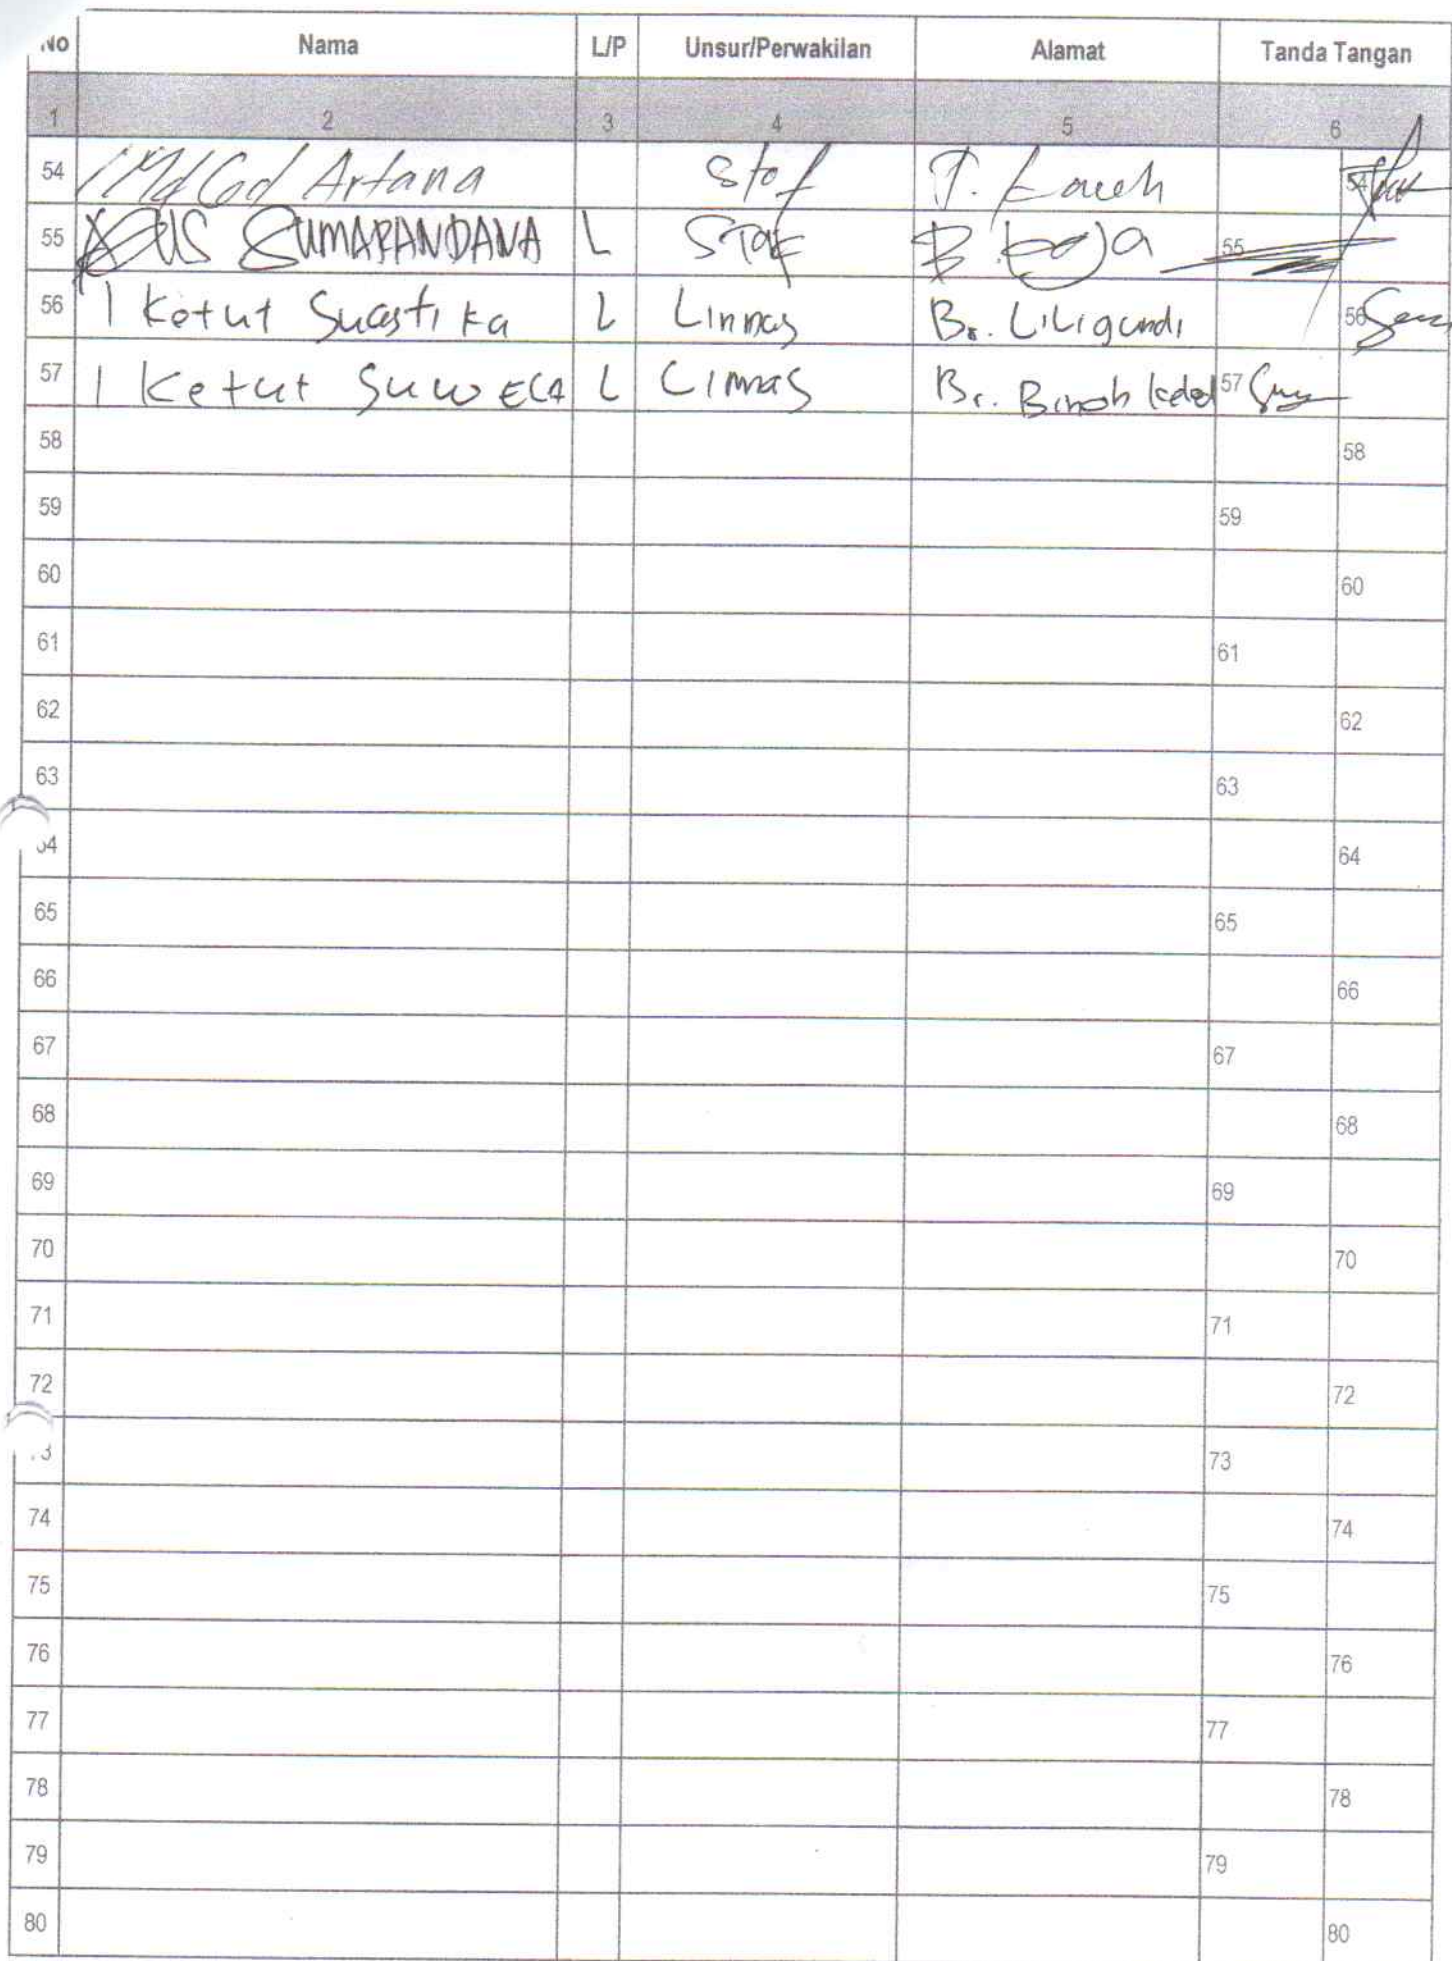 No Nama L/P Unsur/Perwakilan Alamat Tanda Tangan
1 2 3 4 5 6
54 I Md Gd Artana Stof T. 54
55 SUMARANDANA L STAF B. 55
56 I Ketut Suastika L Linmas Br. Liligundi 56
57 I Ketut SuwECA L Limas Br. Binoh kdel 57
58 58
59 59
60 60
61 61
62 62
63 63
64 64
65 65
66 66
67 67
68 68
69 69
70 70
71 71
72 72
73 73
74 74
75 75
76 76
77 77
78 78
79 79
80 80